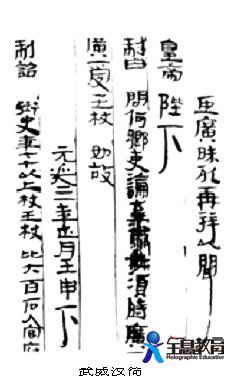 臣廣昧死再拜以聞
皇帝陛下
制曰 問何鄉吏論棄市毋須時廣
廣受王杖 如故
元延三年正月壬申下
制詔 御史年七十以上杖王杖比六百石入官府
武威汉简
全息教育
Holographic Education